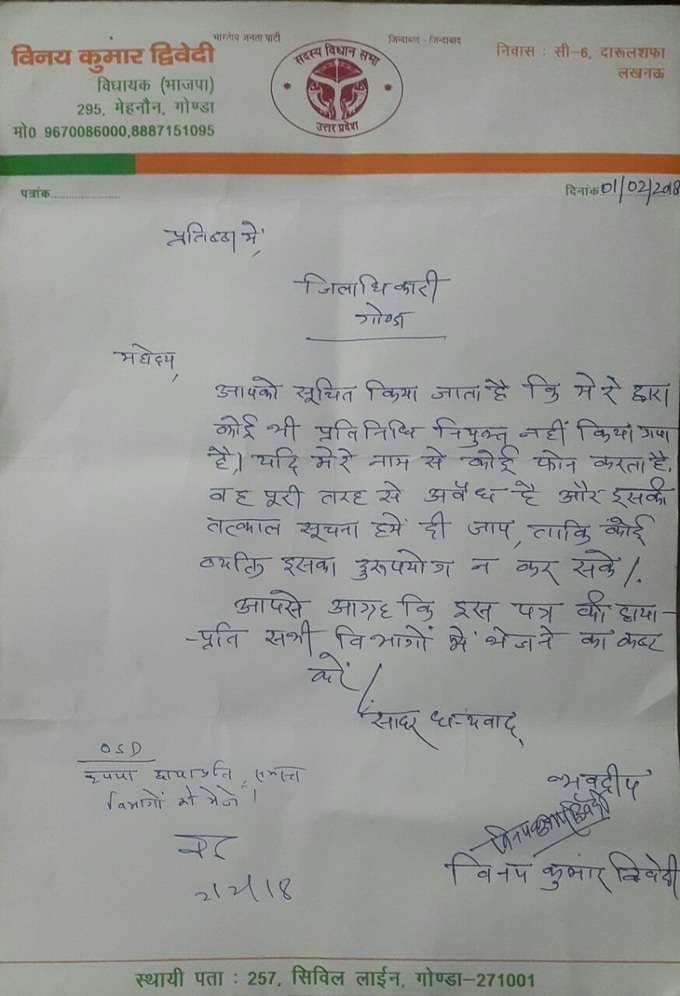 भारतीय जनता पार्टी
जिन्दाबाद - जिन्दाबाद
विनय कुमार द्विवेदी
विधायक (भाजपा)
295, मेहनौन, गोण्डा
मो0 9670086000,8887151095
सदस्य विधान सभा
उत्तर प्रदेश
निवास : सी-6, दारूलशफा
लखनऊ
पत्रांक....................
दिनांक 01/02/2018
प्रतिष्ठा में,
जिलाधिकारी
गोण्डा
महोदय,
आपको सूचित किया जाता है कि मेरे द्वारा
कोई भी प्रतिनिधि नियुक्त नहीं किया गया
है। यदि मेरे नाम से कोई फोन करता है,
वह पूरी तरह से अवैध है और इसकी
तत्काल सूचना हमें दी जाय, ताकि कोई
व्यक्ति इसका दुरूपयोग न कर सके।
आपसे आग्रह कि इस पत्र की छाया-
-प्रति सभी विभागों में भेजने का कष्ट
करें।
सादर धन्यवाद,
OSD
कृपया छायाप्रति समस्त
विभागों को भेजें।
भवदीय
विनय कुमार द्विवेदी
विनय कुमार द्विवेदी
स्थायी पता : 257, सिविल लाईन, गोण्डा-271001